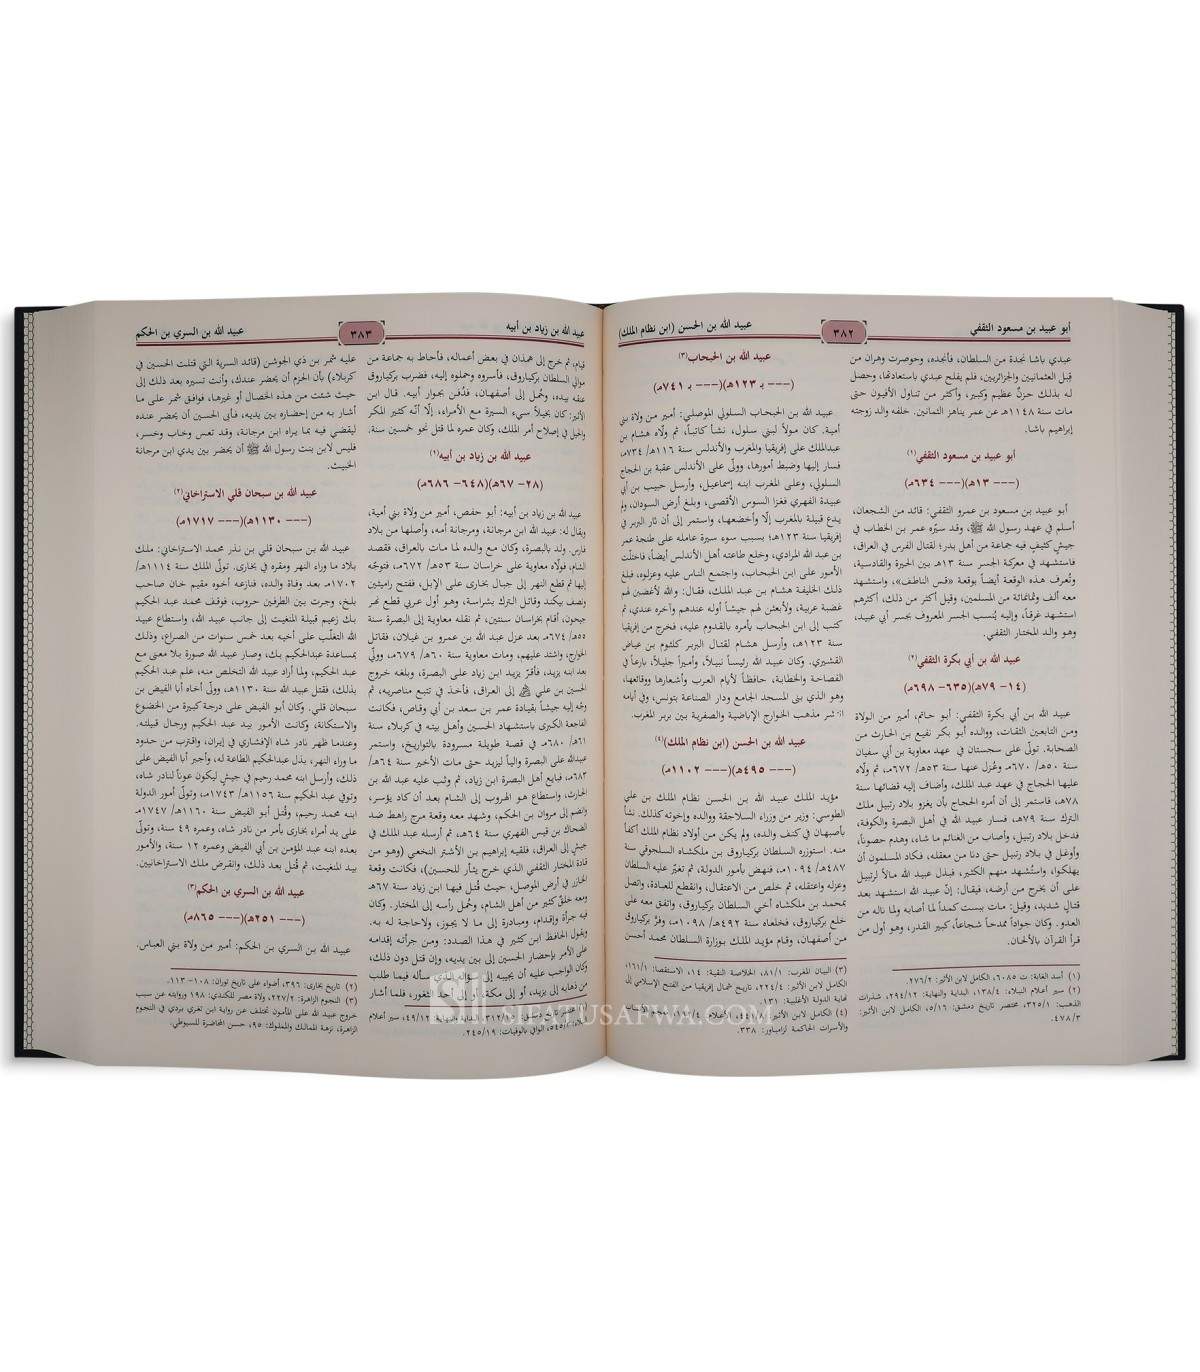 أبو عبيد بن مسعود الثقفي
٣٨٢
عبيد الله بن الحسن (ابن نظام الملك)
عبدي باشا نجدة من السلطان، فأنجده، وحوصرت وهران من
قِبل العثمانيين والجزائريين، فلم يفلح عبدي باستعادتها، وحصل
له بذلك حزنٌ عظيم وكبير، وأكثر من تناول الأفيون حتى
مات سنة ١١٤٨هـ عن عمر يناهز الثمانين. خلفه والد زوجته
إبراهيم باشا.
أبو عبيد بن مسعود الثقفي(١)
(--- ١٣هـ)(--- ٦٣٤م)
أبو عبيد بن مسعود بن عمرو الثقفي: قائد من الشجعان،
أسلم في عهد رسول الله ﷺ، وقد سيّره عمر بن الخطاب في
جيشٍ كثيفٍ فيه جماعة من أهل بدر؛ لقتال الفرس في العراق،
فاستشهد في معركة الجسر سنة ١٣هـ بين الحيرة والقادسية،
وتُعرف هذه الوقعة أيضاً بوقعة «قس الناطف»، واستشهد
معه ألف وثمانمائة من المسلمين، وقيل أكثر من ذلك، أكثرهم
استشهد غرقاً، وإليه يُنسب الجسر المعروف بجسر أبي عبيد،
وهو والد المختار الثقفي.
عبيد الله بن أبي بكرة الثقفي(٢)
(١٤- ٧٩هـ)(٦٣٥- ٦٩٨م)
عبيد الله بن أبي بكرة الثقفي: أبو حاتم، أمير من الولاة
ومن التابعين الثقات، ووالده أبو بكر نفيع بن الحارث من
الصحابة. تولّى على سجستان في عهد معاوية بن أبي سفيان
سنة ٥٠هـ/ ٦٧٠م وعُزل عنها سنة ٥٣هـ/ ٦٧٢م، ثم ولّاه
عليها الحجاج في عهد عبد الملك، وأضاف إليه قضائها سنة
٧٨هـ، فاستمر إلى أن أمره الحجاج بأن يغزو بلاد رتبيل ملك
الترك سنة ٧٩هـ، فسار عبيد الله في أهل البصرة والكوفة،
فدخل بلاد رتبيل، وأصاب من الغنائم ما شاء، وهدم حصوناً،
وأوغل في بلاد رتبيل حتى دنا من معقله، فكاد المسلمون أن
يهلكوا، واستُشهد منهم الكثير، فبذل عبيد الله مالاً لرتبيل
على أن يخرج من أرضه، فيقال: إنّ عبيد الله استشهد بعد
قتال شديد، وقيل: مات ببست كمداً لما أصابه ولما ناله من
العدو. وكان جواداً ممدحاً شجاعاً، كبير القدر، وهو أول من
قرأ القرآن بالألحان.
(١) أسد الغابة: ت ٦٠٨٥، الكامل لابن الأثير: ٢٧٦/٢.
(٢) سير أعلام النبلاء: ١٣٨/٤، البداية والنهاية: ٢٩٤/١٢، شذرات
الذهب: ٣٢٥/١، مختصر تاريخ دمشق: ٥/١٦، الكامل لابن الأثير:
٤٧٨/٣.
عبيد الله بن الحبحاب(٣)
(--- بـ ١٢٣هـ)(--- بـ ٧٤١م)
عبيد الله بن الحبحاب السلولي الموصلي: أمير من ولاة بني
أمية. كان مولاً لبني سلول، نشأ كاتباً، ثم ولّاه هشام بن
عبدالملك على إفريقيا والمغرب والأندلس سنة ١١٦هـ/ ٧٣٤م،
فسار إليها وضبط أمورها، وولّى على الأندلس عقبة بن الحجاج
السلولي، وعلى المغرب ابنه إسماعيل، وأرسل حبيب بن أبي
عبيدة الفهري فغزا السوس الأقصى، وبلغ أرض السودان، ولم
يدع قبيلة بالمغرب إلّا وأخضعها، واستمر إلى أن ثار البربر في
إفريقيا سنة ١٢٣هـ؛ بسبب سوء سيرة عامله على طنجة عمر
بن عبد الله المرادي، وخلع طاعته أهل الأندلس أيضاً، فاختلّت
الأمور على ابن الحبحاب، واجتمع الناس عليه وعزلوه، فبلغ
ذلك الخليفة هشام بن عبد الملك، فقال: والله لأغضبن لهم
غضبة عربية، ولأبعثن لهم جيشاً أوله عندهم وآخره عندي، ثم
كتب إلى ابن الحبحاب يأمره بالقدوم عليه، فخرج من إفريقيا
سنة ١٢٣هـ، وأرسل هشام لقتال البربر كلثوم بن عياض
القشيري. وكان عبيد الله رئيساً نبيلاً، وأميراً جليلاً، بارعاً في
الفصاحة والخطابة، حافظاً لأيام العرب وأشعارها ووقائعها،
وهو الذي بنى المسجد الجامع ودار الصناعة بتونس، وفي أيامه
انتشر مذهب الخوارج الإباضية والصفرية بين بربر المغرب.
عبيد الله بن الحسن (ابن نظام الملك)(٤)
(--- ٤٩٥هـ)(--- ١١٠٢م)
مؤيد الملك عبيد الله بن الحسن نظام الملك بن علي
الطوسي: وزير من وزراء السلاجقة ووالده وإخوته كذلك. نشأ
بأصبهان في كنف والده، ولم يكن من أولاد نظام الملك أكفأ
منه. استوزره السلطان بركياروق بن ملكشاه السلجوقي سنة
٤٨٧هـ/ ١٠٩٤م، فنهض بأمور الدولة، ثم تغيّر عليه السلطان
وعزله واعتقله، ثم خلص من الاعتقال، وانقطع للعبادة، واتصل
بمحمد بن ملكشاه أخي السلطان بركياروق، واتفق معه على
خلع بركياروق، فخلعاه سنة ٤٩٢هـ/ ١٠٩٨م، وفرّ بركياروق
من أصفهان، وقام مؤيد الملك بوزارة السلطان محمد أحسن
(٣) البيان المغرب: ٨١/١، الخلاصة النقية: ١٤، الاستقصا: ١٦١/١،
الكامل لابن الأثير: ٢٢٤/٤، تاريخ شمال إفريقيا من الفتح الإسلامي إلى
نهاية الدولة الأغلبية: ١٣١.
(٤) الكامل لابن الأثير: ٤٤١/٨، الأعلام: ١٩٣/٤، معجم الأنساب
والأسرات الحاكمة لزامباور: ٣٣٨.
عبيد الله بن زياد بن أبيه
٣٨٣
عبيد الله بن السري بن الحكم
قيام، ثم خرج إلى همذان في بعض أعماله، فأحاط به جماعة من
موالي السلطان بركياروق، فأسروه وحملوه إليه، فضرب بركياروق
عنقه بيده، وحُمل إلى أصفهان، فدُفن بجوار أبيه. قال ابن
الأثير: كان بخيلاً سيء السيرة مع الأمراء، إلّا أنّه كثير المكر
والحيل في إصلاح أمر الملك، وكان عمره لما قتل نحو خمسين سنة.
عبيد الله بن زياد بن أبيه(١)
(٢٨- ٦٧هـ)(٦٤٨- ٦٨٦م)
عبيد الله بن زياد بن أبيه: أبو حفص، أمير من ولاة بني أمية،
ويقال له: عبيد الله ابن مرجانة، ومرجانة أمه، وأصلها من بلاد
فارس. ولد بالبصرة، وكان مع والده لما مات بالعراق، فقصد
الشام، فولّاه معاوية على خراسان سنة ٥٣هـ/ ٦٧٢م، فتوجّه
إليها ثم قطع النهر إلى جبال بخارى على الإبل، ففتح راميثين
ونصف بيكند وقاتل الترك بشراسة، وهو أول عربي قطع نهر
جيحون، أقام بخراسان سنتين، ثم نقله معاوية إلى البصرة سنة
٥٥هـ/ ٦٧٤م بعد عزل عبد الله بن عمرو بن غيلان، فقاتل
الخوارج، واشتد عليهم، ومات معاوية سنة ٦٠هـ/ ٦٧٩م، وولّي
بعد ابنه يزيد، فأقرّ يزيد ابن زياد على البصرة، وبلغه خروج
الحسين بن علي إلى العراق، فأخذ في تتبع مناصريه، ثم
وجّه إليه جيشاً بقيادة عمر بن سعد بن أبي وقاص، فكانت
الفاجعة الكبرى باستشهاد الحسين وأهل بيته في كربلاء سنة
٦١هـ/ ٦٨٠م في قصة طويلة مسرودة بالتواريخ، واستمر
عبدالله على البصرة والياً ليزيد حتى مات الأخير سنة ٦٤هـ/
٦٨٣م، فبايع أهل البصرة ابن زياد، ثم وثب عليه عبد الله بن
الحارث، واستطاع هو الهروب إلى الشام بعد أن كاد يؤسر،
وانضم إلى مروان بن الحكم، وشهد معه وقعة مرج راهط ضد
الضحاك بن قيس الفهري سنة ٦٤هـ، ثم أرسله عبد الملك في
جيش إلى العراق، فلقيه إبراهيم بن الأشتر النخعي (وهو من
قادة المختار الثقفي الذي خرج يثأر للحسين)، فكانت وقعة
الخازر في أرض الموصل، حيث قُتل فيها ابن زياد سنة ٦٧هـ
ومعه خلقٌ كثير من أهل الشام، وحُمل رأسه إلى المختار. وكان
فيه جرأة وإقدام، ومبادرة إلى ما لا يجوز، ولاحاجة له به.
ويقول الحافظ ابن كثير في هذا الصدد: ومن جرأته إقدامه
على الأمر بإحضار الحسين إلى بين يديه، وإن قتل دون ذلك،
وكان الواجب عليه أن يجيبه إلى سؤاله فيما طلب
من ذهابه إلى يزيد، أو إلى مكة، أو إلى أحد الثغور، فلما أشار
البداية والنهاية: ٤٩/١٢، سير أعلام
النبلاء: ٥٤٥/٣، الوافي بالوفيات: ٢٤٥/١٩.
عليه شمر بن ذي الجوشن (قائد السرية التي قتلت الحسين في
كربلاء) بأن الحزم أن يحضر عندك، وأنت تسيره بعد ذلك إلى
حيث شئت من هذه الخصال أو غيرها، فوافق شمر على ما
أشار به من إحضاره بين يديه، فأبى الحسين أن يحضر عنده
ليقضي فيه بما يراه ابن مرجانة، وقد تعس وخاب وخسر،
فليس لابن بنت رسول الله ﷺ أن يحضر بين يدي ابن مرجانة
الخبيث.
عبيد الله بن سبحان قلي الاستراخاني(٢)
(--- ١١٣٠هـ)(--- ١٧١٧م)
عبيد الله بن سبحان قلي بن نذر محمد الاستراخاني: ملك
بلاد ما وراء النهر ومقره في بخارى. تولّى الملك سنة ١١١٤هـ/
١٧٠٢م بعد وفاة والده، فنازعه أخوه مقيم خان صاحب
بلخ، وجرت بين الطرفين حروب، فوقف محمد عبد الحكيم
بك زعيم قبيلة المنغيت إلى جانب عبيد الله، واستطاع عبيد
الله التغلّب على أخيه بعد خمس سنوات من الصراع، وذلك
بمساعدة عبدالحكيم بك، وصار عبيد الله صورة بلا معنى مع
عبد الحكيم، ولما أراد عبيد الله التخلص منه، علم عبد الحكيم
بذلك، فقتل عبيد الله سنة ١١٣٠هـ، وولّى أخاه أبا الفيض بن
سبحان قلي. وكان أبو الفيض على درجة كبيرة من الخضوع
والاستكانة، وكانت الأمور بيد عبد الحكيم ورجال قبيلته.
وعندما ظهر نادر شاه الإفشاري في إيران، واقترب من حدود
ما وراء النهر، بذل عبدالحكيم الطاعة له، وأجبر أبا الفيض على
ذلك، وأرسل ابنه محمد رحيم في جيشٍ ليكون عوناً لنادر شاه،
وتوفي عبد الحكيم سنة ١١٥٦هـ/ ١٧٤٣م، وتولّى أمور الدولة
ابنه محمد رحيم، وقُتل أبو الفيض سنة ١١٦٠هـ/ ١٧٤٧م
على يد أمراء بخارى بأمر من نادر شاه، وعمره ٤٩ سنة، وتولّى
بعده ابنه عبد المؤمن بن أبي الفيض وعمره ١٢ سنة، والأمور
بيد المنغيت، ثم قُتل بعد ذلك، وانقرض ملك الاستراخانيين.
عبيد الله بن السري بن الحكم(٣)
(--- ٢٥١هـ)(--- ٨٦٥م)
عبيد الله بن السري بن الحكم: أمير من ولاة بني العباس.
(٢) تاريخ بخارى: ٣٩٦، أضواء على تاريخ توران: ١٠٨- ١١٣.
(٣) النجوم الزاهرة: ٢٢٧/٢، ولاة مصر للكندي: ١٩٨ وروايته عن سبب
خروج عبيد الله على المأمون تختلف عن رواية ابن تغري بردي في النجوم
الزاهرة، نزهة الممالك والمملوك: ٩٥، حسن المحاضرة للسيوطي.
SIFATUSAFWA.COM